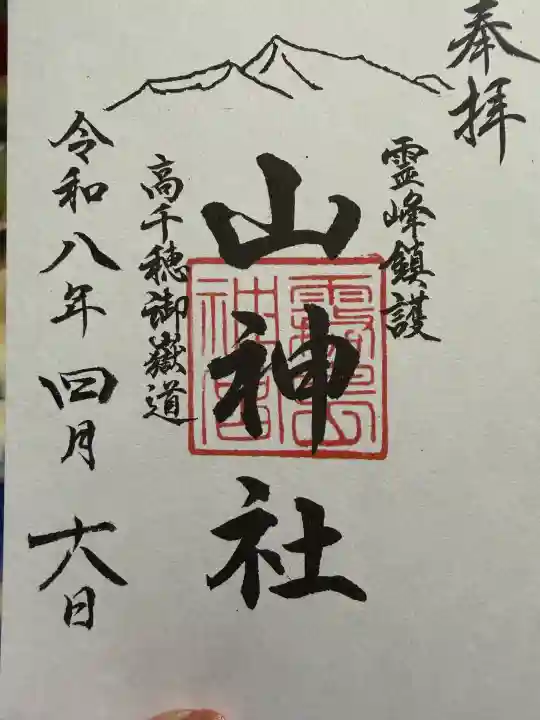 奉拝
霊峰鎮護
山神社
霧島
神宮
高千穂御嶽道
令和八年四月六日